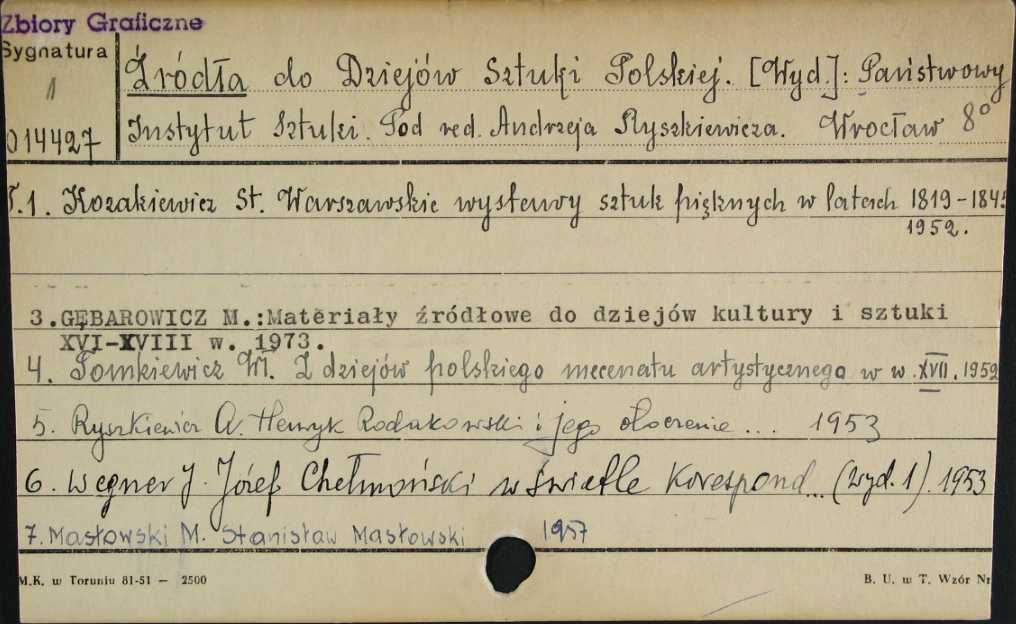 Zbiory Graficzne
Sygnatura
1
014427
Źródła do Dziejów Sztuki Polskiej. [Wyd.]: Państwowy
Instytut Sztuki. Pod red. Andrzeja Ryszkiewicza. Wrocław 8°
T.1. Kozakiewicz St. Warszawskie wystawy sztuk pięknych w latach 1819-1845
1952.
3.GĘBAROWICZ M.:Materiały źródłowe do dziejów kultury i sztuki
XVI-XVIII w. 1973.
4. Tomkiewicz Wł. Z dziejów polskiego mecenatu artystycznego w w. XVII. 1952
5. Ryszkiewicz A. Henryk Rodakowski i jego otoczenie ... 1953
6. Wegner J. Józef Chełmoński w świetle korespond... (Wyd. 1). 1953
7. Masłowski M. Stanisław Masłowski 1957
M.K. w Toruniu 81-51 — 2500
B. U. w T. Wzór Nr